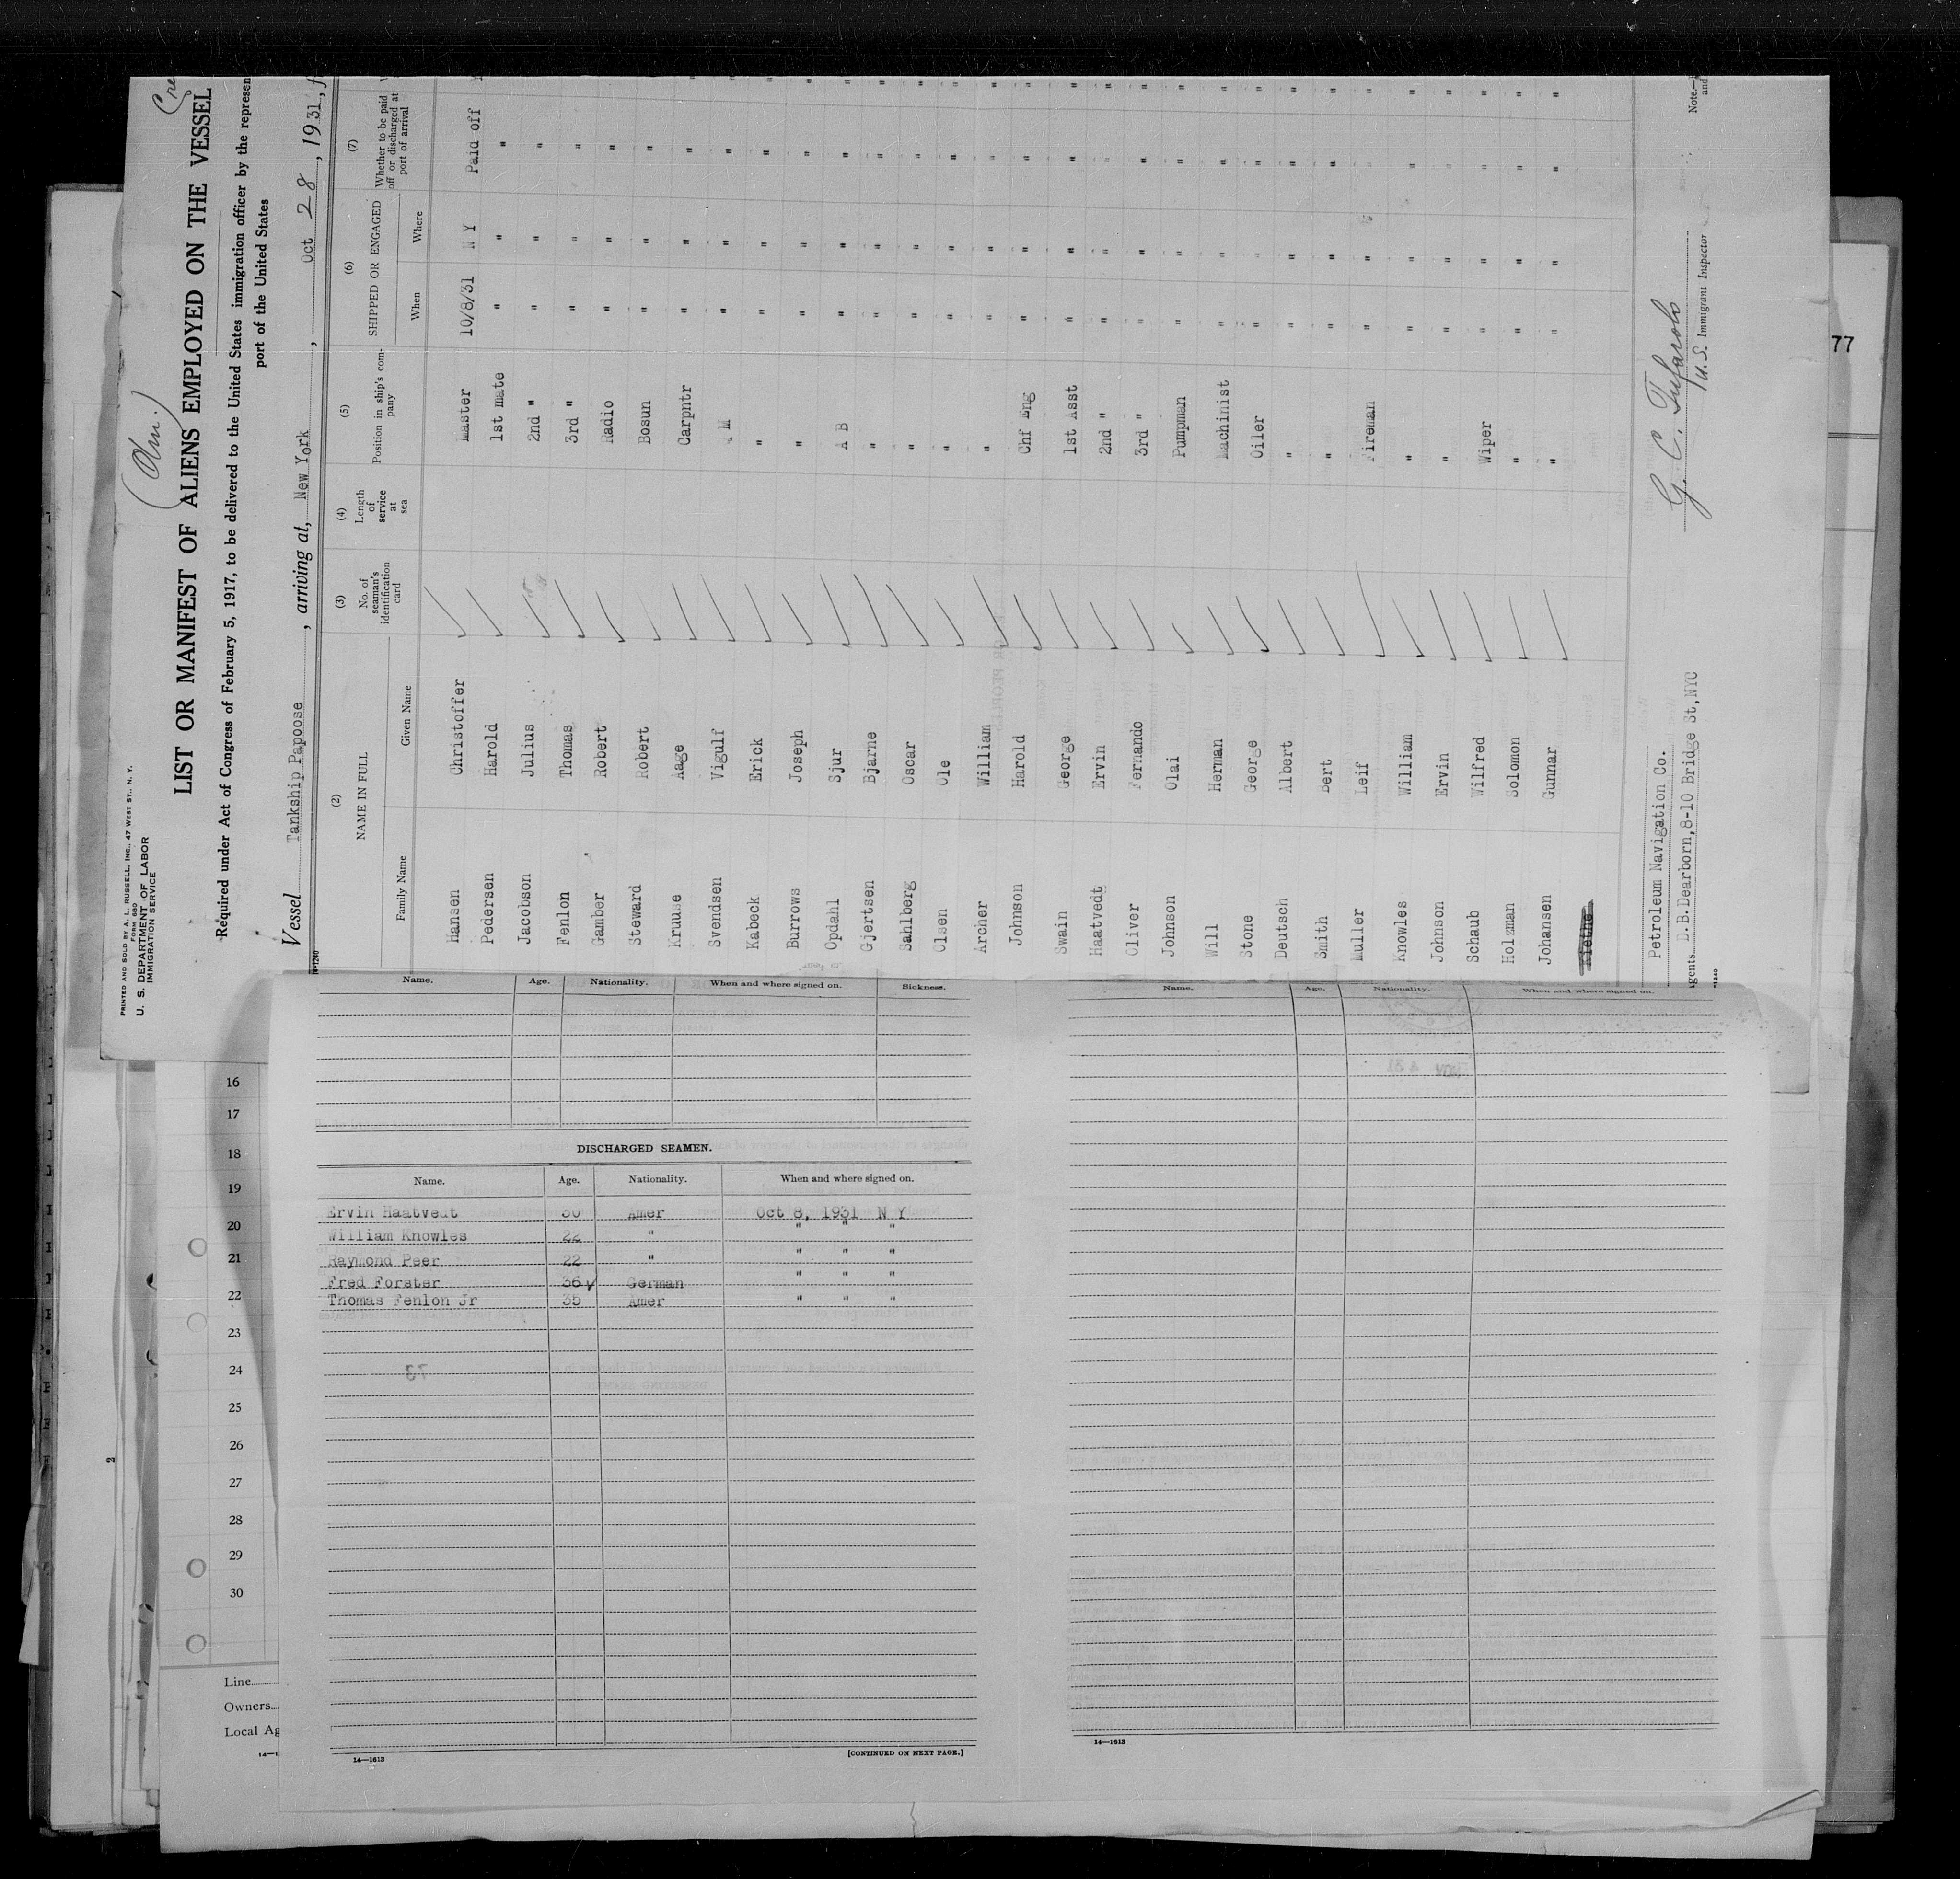 PRINTED AND SOLD BY A. L. RUSSELL, INC., 47 WEST ST., N. Y.
FORM 680
U. S. DEPARTMENT OF LABOR
IMMIGRATION SERVICE
LIST OR MANIFEST OF ALIENS EMPLOYED ON THE VESSEL
Required under Act of Congress of February 5, 1917, to be delivered to the United States immigration officer by the represen
port of the United States
Vessel Tankship Papoose, arriving at, New York, Oct 28, 1931, f
(2) NAME IN FULL (3) No. of seaman's identification card (4) Length of service at sea (5) Position in ship's company (6) SHIPPED OR ENGAGED (7) Whether to be paid off or discharged at port of arrival
Family Name Given Name When Where
Hansen Christoffer Master 10/8/31 N Y Paid off
Pedersen Harold 1st mate " " "
Jacobson Julius 2nd " " " "
Fenlon Thomas 3rd " " " "
Gamber Robert Radio " " "
Steward Robert Bosun " " "
Kruuse Aage Carpntr " " "
Svendsen Vigulf M " " "
Kabeck Erick " " " "
Burrows Joseph " " " "
Opdahl Sjur A B " " "
Gjertsen Bjarne " " " "
Sahlberg Oscar " " " "
Olsen Ole " " " "
Archer William " " " "
Johnson Harold Chf Eng " " "
Swain George 1st Asst " " "
Haatvedt Ervin 2nd " " " "
Oliver Fernando 3rd " " " "
Johnson Olai Pumpman " " "
Will Herman Machinist " " "
Stone George Oiler " " "
Deutsch Albert " " " "
Smith Bert " " " "
Muller Leif Fireman " " "
Knowles William " " " "
Johnson Ervin " " " "
Schaub Wilfred Wiper " " "
Holzman Solomon " " " "
Johansen Gunnar " " " "
Petroleum Navigation Co.
gents. D.B.Dearborn,8-10 Bridge St,NYC
U.S. Immigrant Inspector
Note.—
and
77
Name. Age. Nationality. When and where signed on. Sickness.
DISCHARGED SEAMEN.
Name. Age. Nationality. When and where signed on.
Ervin Haatvedt 30 Amer Oct 8, 1931 N Y
William Knowles 22 " " " "
Raymond Peer 22 " " " "
Fred Forster 36 German " " "
Thomas Fenlon Jr 35 Amer " " "
14—1613
[CONTINUED ON NEXT PAGE.]
Name. Age. Nationality. When and where signed on.
14—1613
16
17
18
19
20
21
22
23
24
25
26
27
28
29
30
Line
Owners
Local Ag
14—1
2